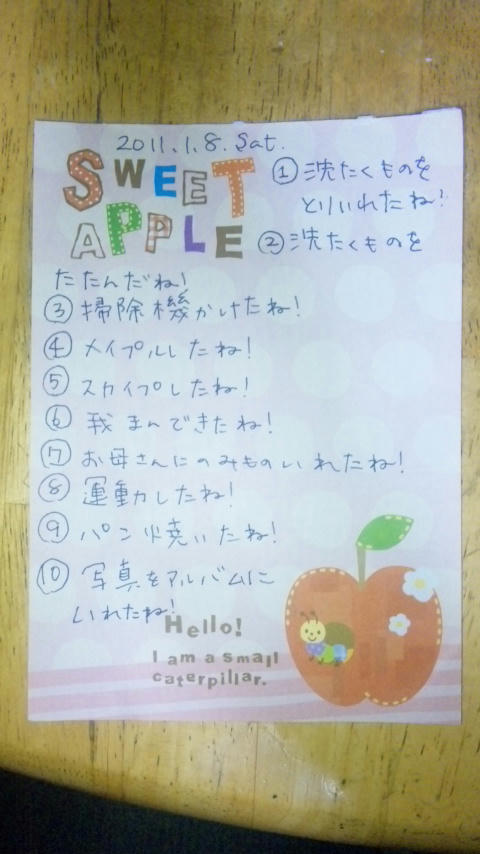 2011.1.8.Sat.
SWEET
APPLE
① 洗たくものを
とりいれたね!
② 洗たくものを
たたんだね!
③ 掃除機かけたね!
④ メイプルしたね!
⑤ スカイプしたね!
⑥ 我まんできたね!
⑦ お母さんにのみものいれたね!
⑧ 運動したね!
⑨ パン焼いたね!
⑩ 写真をアルバムに
いれたね!
Hello!
I am a small
caterpillar.